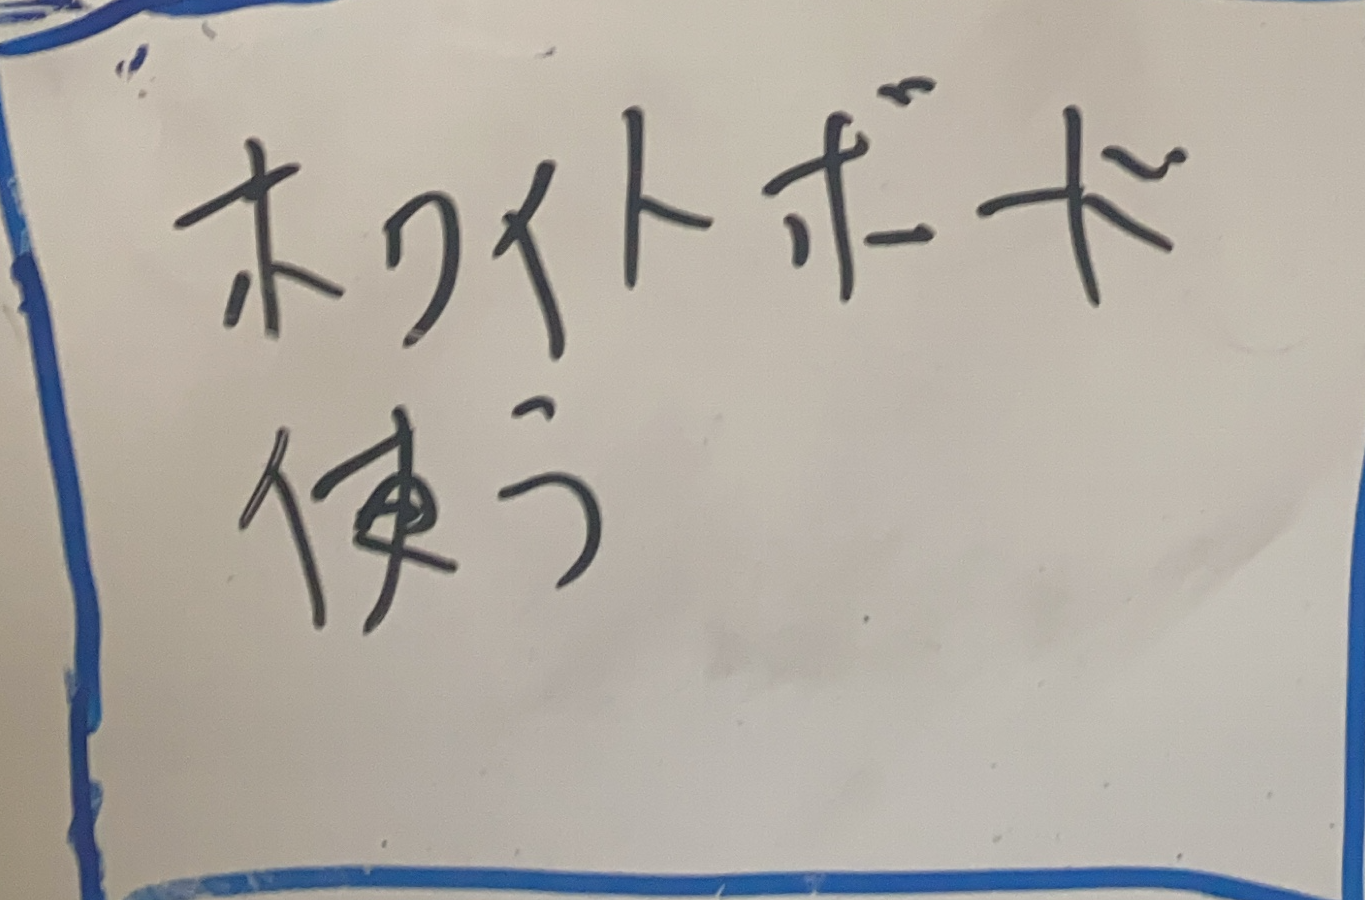 ホワイトボード
使う